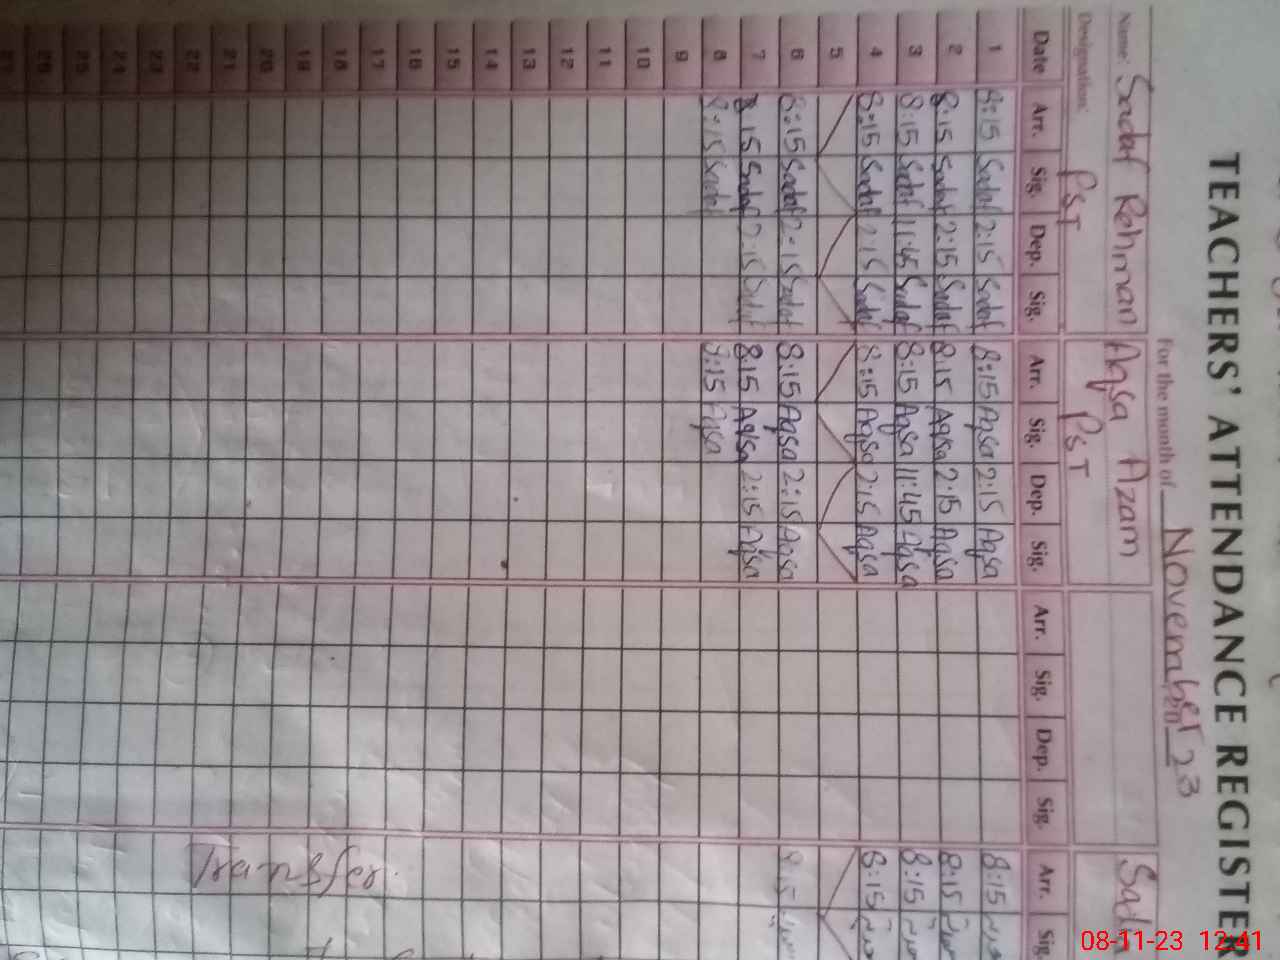 TEACHERS' ATTENDANCE REGISTER
For the month of November 2023
Name: Sadaf Rehman Aqsa Azam
Designation: PST PST
Date Arr. Sig. Dep. Sig. Arr. Sig. Dep. Sig. Arr. Sig. Dep. Sig. Arr. Sig.
1 8:15 Sadaf 2:15 Sadaf 8:15 Aqsa 2:15 Aqsa 8:15
2 8:15 Sadaf 2:15 Sadaf 8:15 Aqsa 2:15 Aqsa 8:15
3 8:15 Sadaf 11:45 Sadaf 8:15 Aqsa 11:45 Aqsa 8:15
4 8:15 Sadaf 2:15 Sadaf 8:15 Aqsa 2:15 Aqsa 8:15
5
6 8:15 Sadaf 2:15 Sadaf 8:15 Aqsa 2:15 Aqsa 8:15
7 8:15 Sadaf 2:15 Sadaf 8:15 Aqsa 2:15 Aqsa
8 8:15 Sadaf 8:15 Aqsa
9
10
11
12
13
14
15
16
17
18
19
20
21
22
23
24
25
26
27
Transfer
08-11-23 12:41